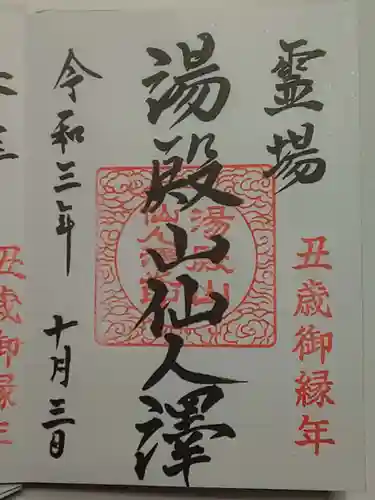 霊場
丑歳御縁年
湯殿山仙人澤
湯殿山
仙人澤
令和三年 十月三日
丑歳御縁年